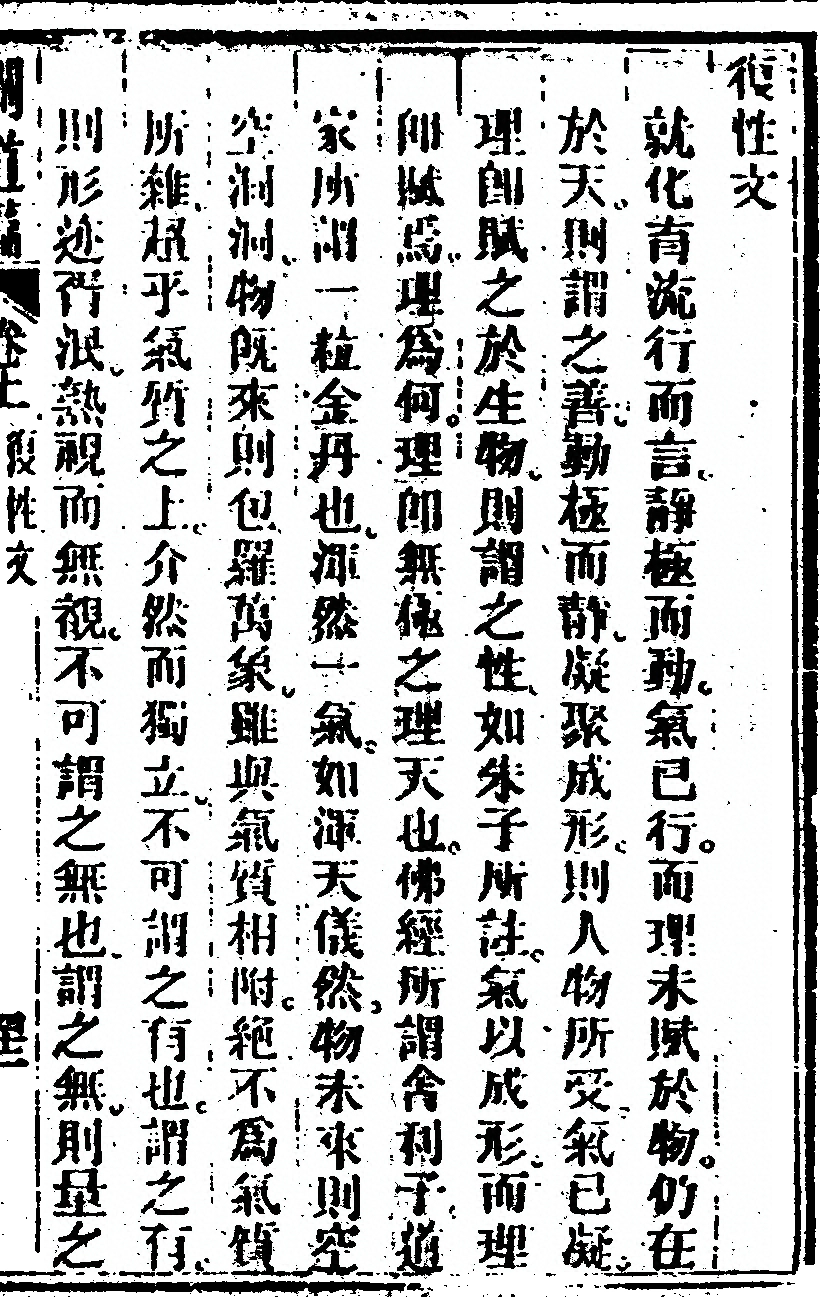 復性文
就化育流行而言靜極而動氣已行而理未賦於物仍在
於天則謂之善動極而靜凝聚成形則人物所受氣已凝
理即賦之於生物則謂之性如朱子所註氣以成形而理
即賦焉理為何理即無極之理天也佛經所謂舍利子道
家所謂一粒金丹也渾然一氣如渾天儀然物未來則空
空洞洞物既來則包羅萬象雖與氣質相附絕不為氣質
所雜超乎氣質之上介然而獨立不可謂之有也謂之有
則形迹胥泯熟視而無覩不可謂之無也謂之無則量之
卷上 復性文